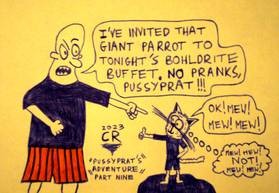 I'VE INVITED THAT
GIANT PARROT TO
TONIGHT'S BOHLDRITE
BUFFET. NO PRANKS,
PUSSYPRAT!!!
OK! MEW!
MEW! MEW!
MEW! MEW!
NOT!
MEW! MEW!
2023
CR
"PUSSYPRAT'S
ADVENTURE"
PART NINE